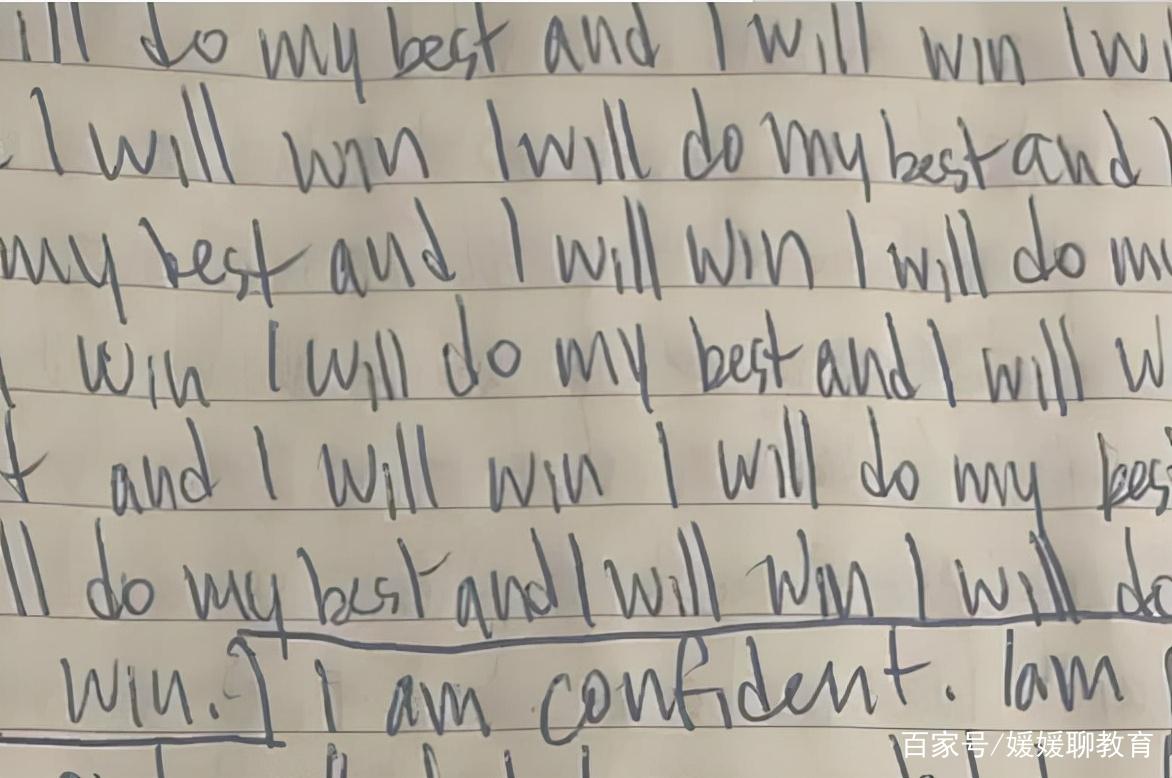 ill do my best and I will win I wi
. I will win I will do my best and I
my best and I will win I will do my
win I will do my best and I will w
t and I will win I will do my bes
ll do my best and I will win I will do
win. I am confident. I am
百家号/媛媛聊教育